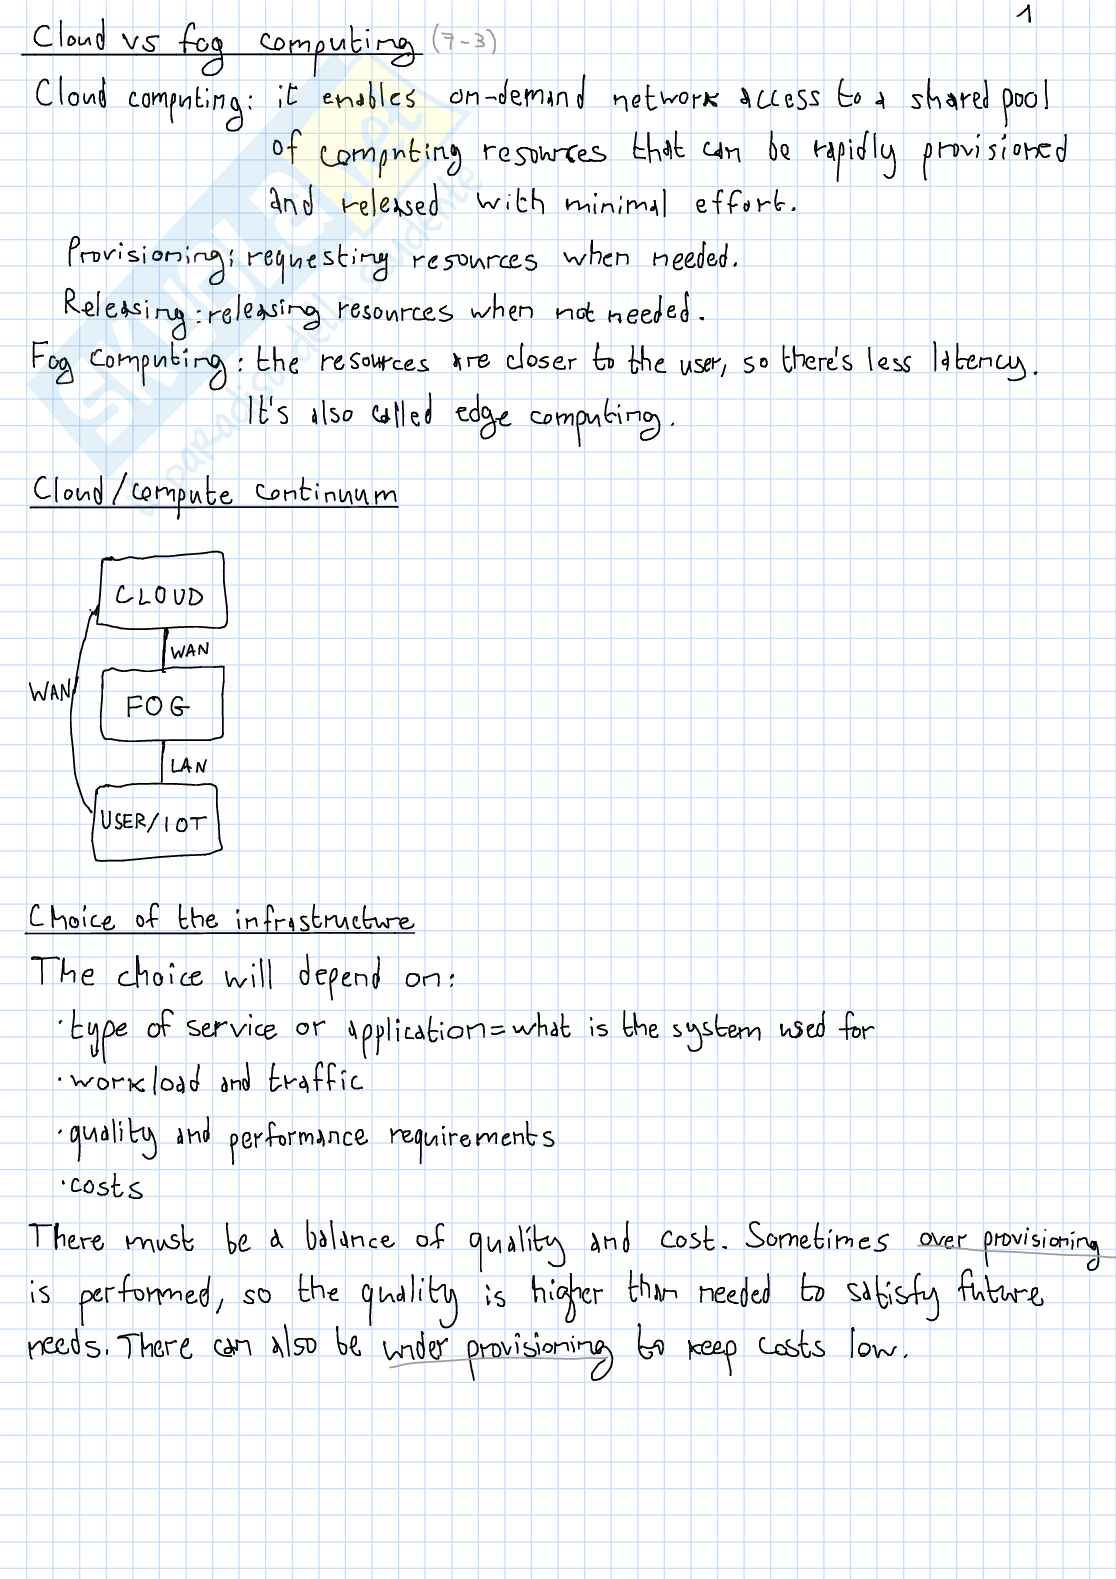 1
Cloud vs fog computing (7-3)
Cloud computing: it enables on-demand network access to a shared pool
of computing resources that can be rapidly provisioned
and released with minimal effort.
Provisioning: requesting resources when needed.
Releasing: releasing resources when not needed.
Fog computing: the resources are closer to the user, so there's less latency.
It's also called edge computing.
Cloud/compute continuum
CLOUD
WAN
WAN
FOG
LAN
USER/IOT
Choice of the infrastructure
The choice will depend on:
·type of service or application=what is the system used for
·workload and traffic
·quality and performance requirements
·costs
There must be a balance of quality and cost. Sometimes over provisioning
is performed, so the quality is higher than needed to satisfy future
needs. There can also be under provisioning to keep costs low.